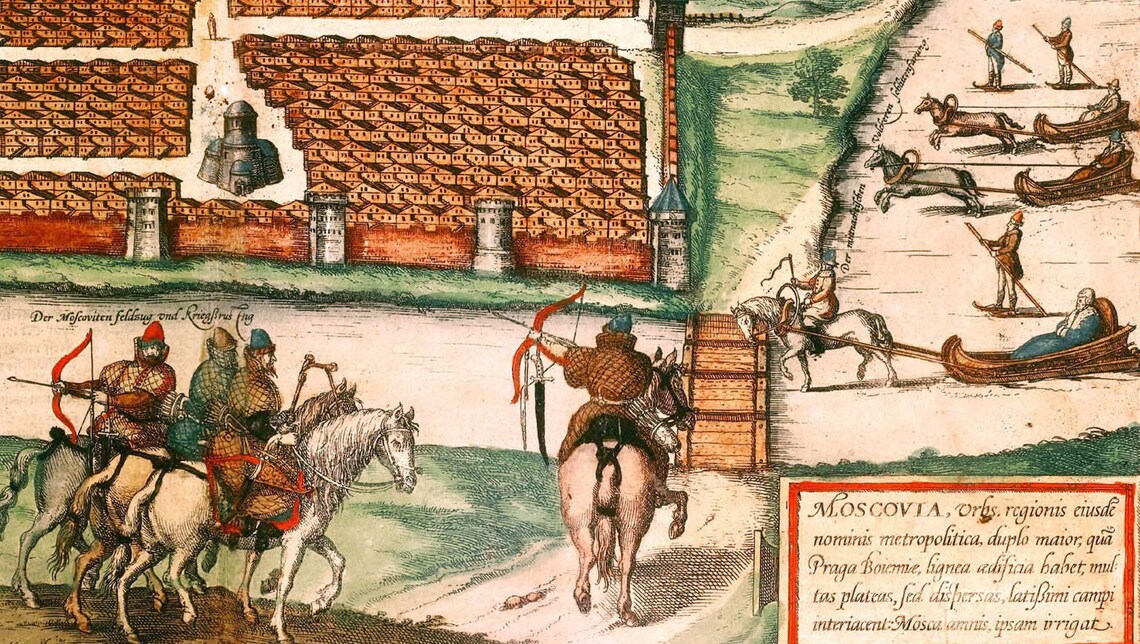 Der Moscoviten feldzug vnd Kriegsrustung
Der
MOSCOVIA, Vrbs, regionis eiusdē
nominis metropolitica, duplo maior, quā
Praga Boiemiæ, lignea ædificia habet, mul-
tas plateas, sed dispersas, latissimi campi
interiacent: Mosca amnis, ipsam irrigat.